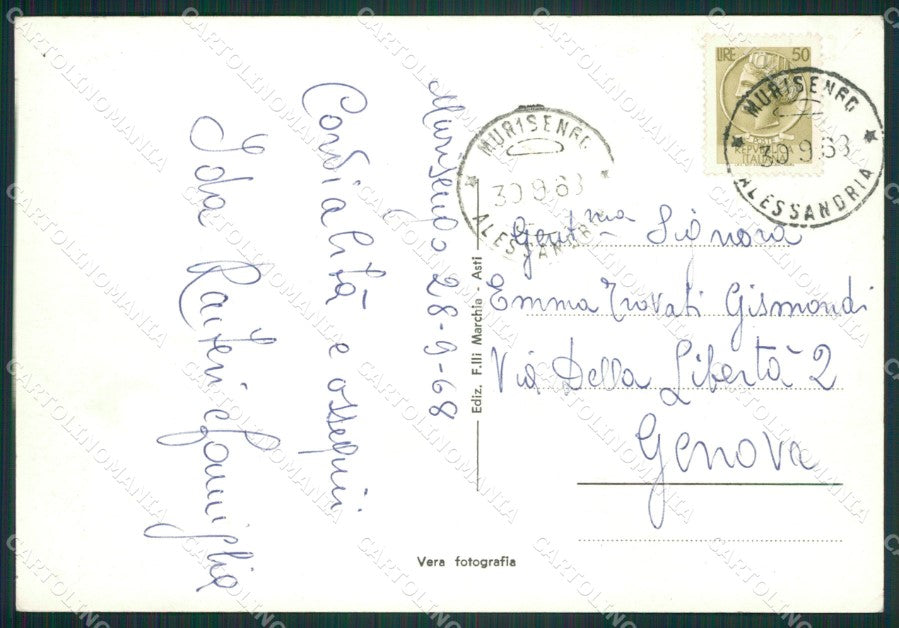 Murisengo 28-9-68
Cordialità e ossequi
Ida e famiglia
LIRE 50
REPVBBLICA
ITALIANA
MURISENGO
30.9.68
ALESSANDRIA
MURISENGO
30.9.68
ALESSANDRIA
Gent.ma Signora
Emma Trovati Gismondi
Via Della Libertà 2
Genova
Ediz. F.lli Marchia - Asti
Vera fotografia
CARTOLINOMANIA